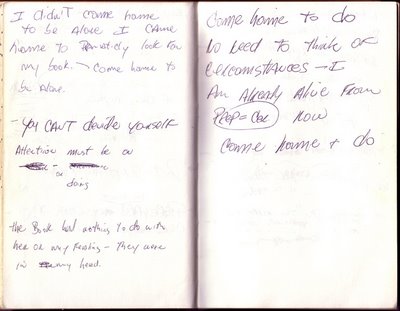 I didn't come home
to be Alone I came
home to look for
my book. Come home to
be Alone.
- You CAN'T decide yourself
Attention must be on
or
doing
the Book had nothing to do with
her or my feeling - They were
in my head.
Come home to do
No need to think of
circumstances - I
Am Already Alive From
PREP = Car now
Come home + do